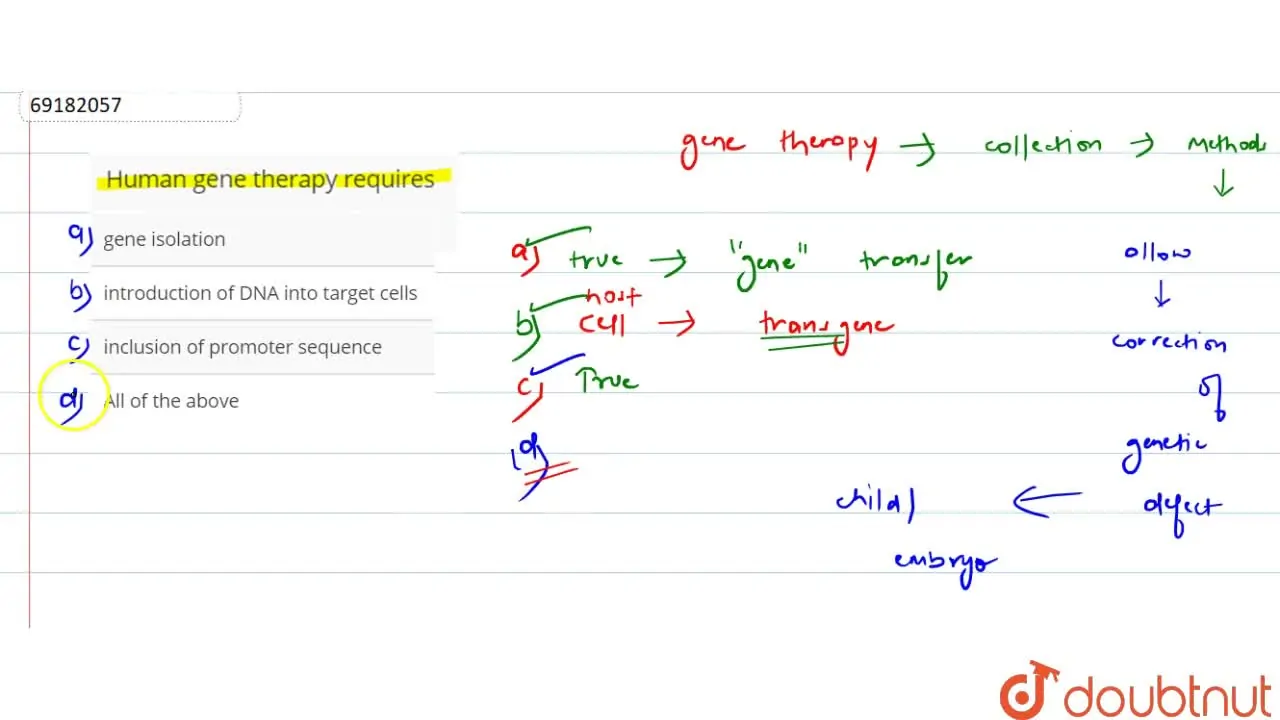 69182057
gene therapy → collection → methods
↓
Human gene therapy requires
a) gene isolation
b) introduction of DNA into target cells
c) inclusion of promoter sequence
d) All of the above
a) true → "gene" transfer
b) host cell → transgene
c) True
(d)
allow
↓
correction
of
genetic
defect
← child/
embryo
doubtnut